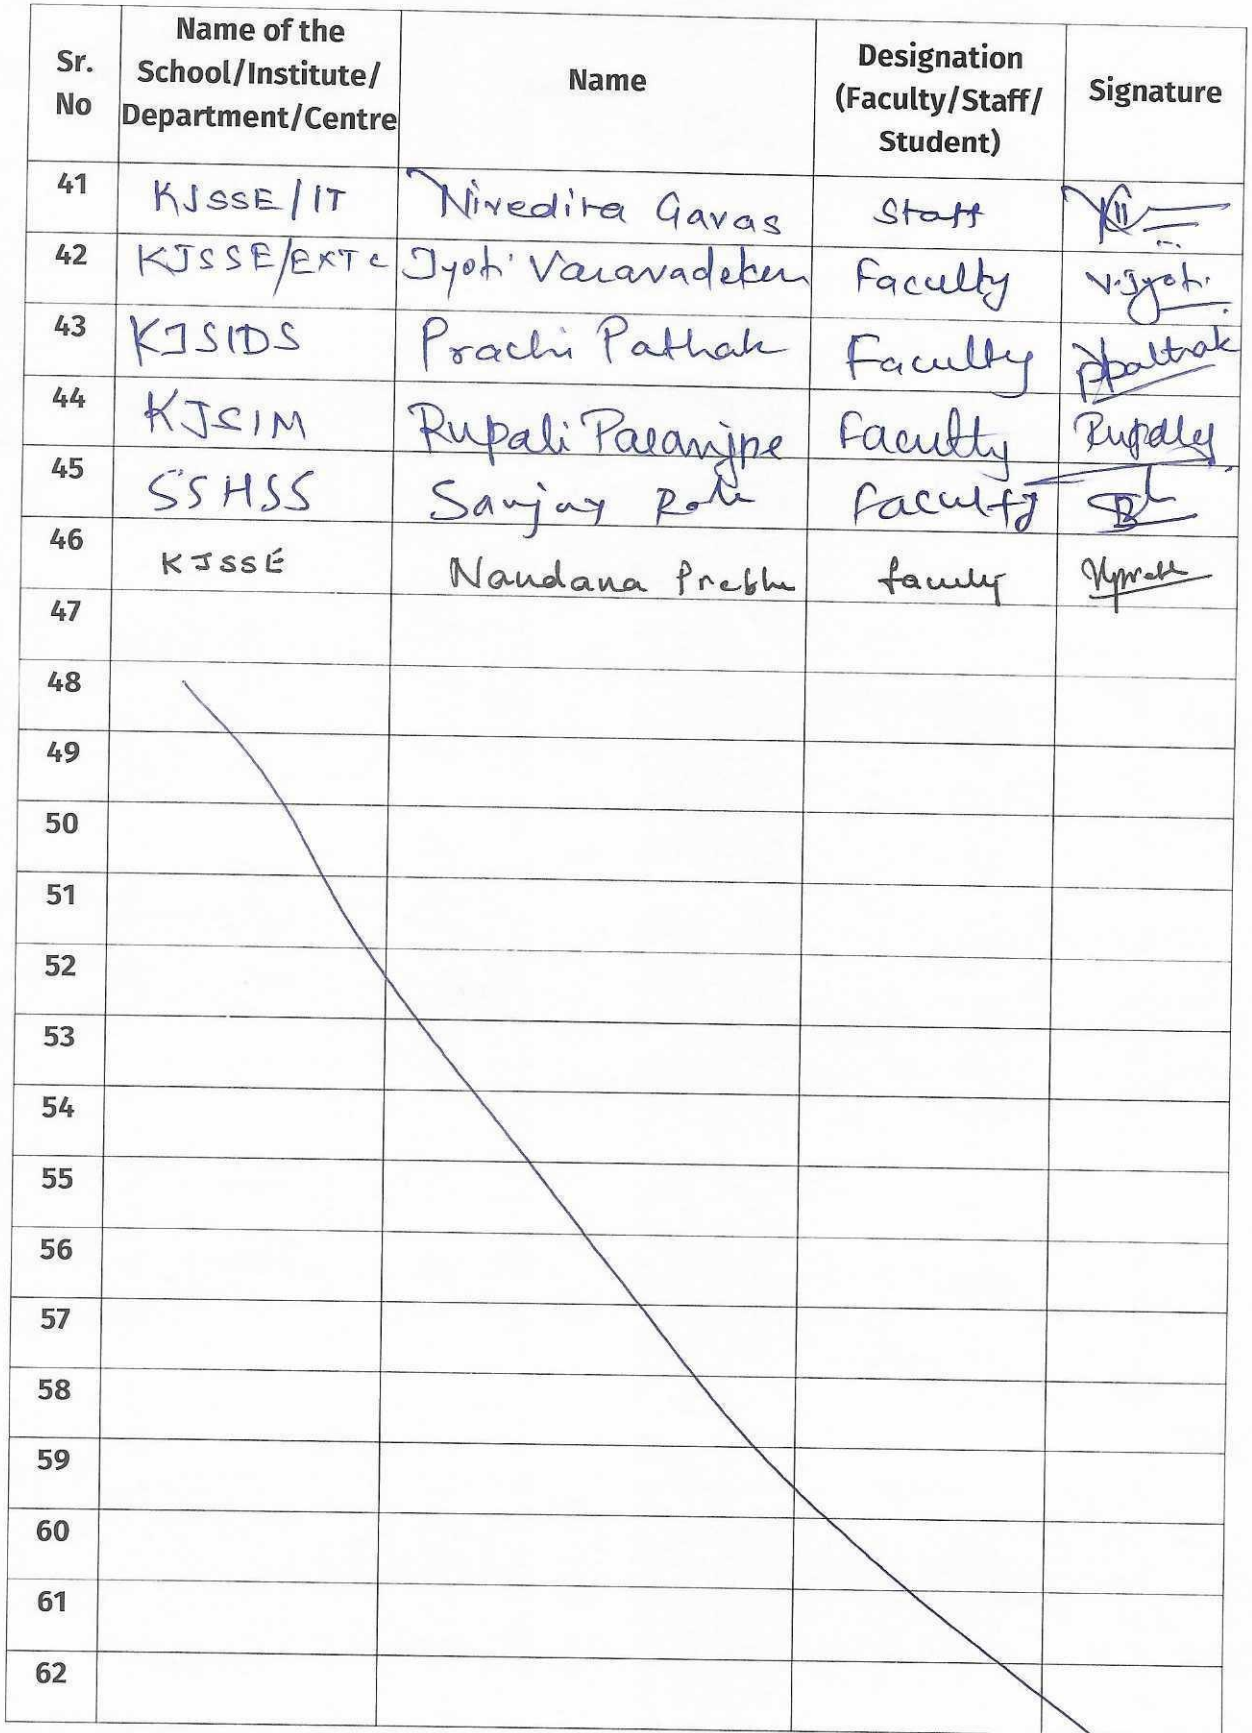 Sr. No | Name of the School/Institute/Department/Centre | Name | Designation (Faculty/Staff/Student) | Signature
41 | KJSSE/IT | Nivedita Gavas | Staff
42 | KJSSE/EXTC | Jyoti Varavadekar | Faculty | V.Jyoti.
43 | KJSIDS | Prachi Pathak | Faculty | ppathak
44 | KJSIM | Rupali Paranjpe | Faculty
45 | SSHSS | Sanjay | Faculty
46 | KJSSE | Nandana Prabhu | faculty
47
48
49
50
51
52
53
54
55
56
57
58
59
60
61
62